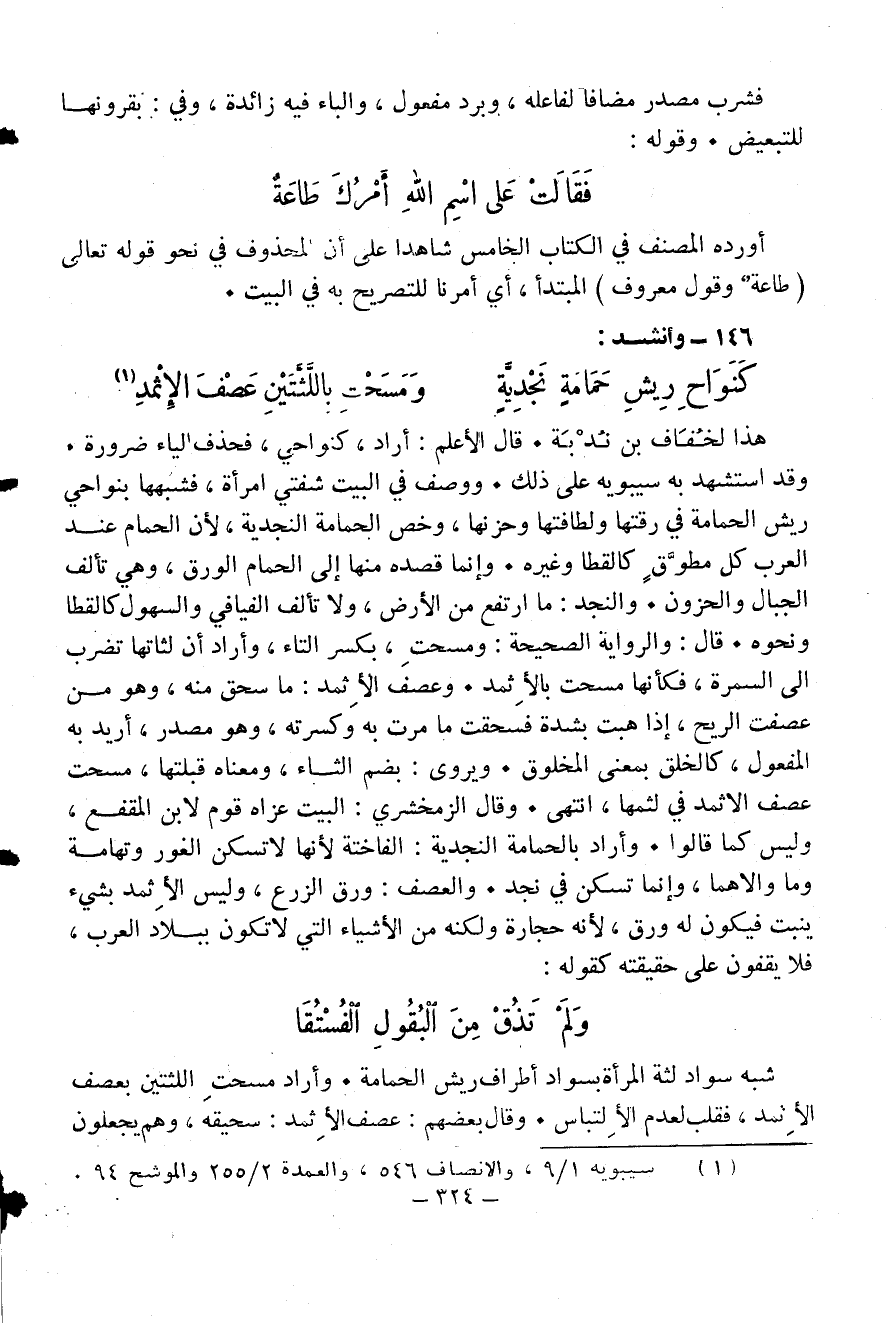 فشرب مصدر مضافاً لفاعله ، وبرد مفعول ، والباء فيه زائدة ، وفي : بقرونهــا
للتبعيض ٠ وقوله :
فَقَالَتْ عَلى اسْمِ اللهِ أَمْرُكَ طَاعَةٌ
أورده المصنف في الكتاب الخامس شاهدا على أن المحذوف في نحو قوله تعالى
( طاعةٌ وقول معروف ) المبتدأ ، أي أمرنا للتصريح به في البيت ٠
١٤٦ – وأنشــد :
كَنَوَاحِ رِيشِ حَمَامَةٍ نَجْدِيَّةٍ وَمَسَحْتِ بِاللَّثَتَيْنِ عَصْفَ الإِثْمدِ(١)
هذا لخفاف بن نُدْبَة ٠ قال الأعلم : أراد ، كنواحي ، فحذف الياء ضرورة ٠
وقد استشهد به سيبويه على ذلك ٠ ووصف في البيت شفتي امرأة ، فشبهها بنواحي
ريش الحمامة في رقتها ولطافتها وحزنها ، وخص الحمامة النجدية ، لأن الحمام عنــد
العرب كل مطوَّقٍ كالقطا وغيره ٠ وإنما قصده منها إلى الحمام الورق ، وهي تألف
الجبال والحزون ٠ والنجد : ما ارتفع من الأرض ، ولا تألف الفيافي والسهول كالقطا
ونحوه ٠ قال : والرواية الصحيحة : ومسحتِ ، بكسر التاء ، وأراد أن لثاتها تضرب
الى السمرة ، فكأنها مسحت بالأِثمد ٠ وعصف الأِثمد : ما سحق منه ، وهو مــن
عصفت الريح ، إذا هبت بشدة فسحقت ما مرت به وكسرته ، وهو مصدر ، أريد به
المفعول ، كالخلق بمعنى المخلوق ٠ ويروى : بضم الثــاء ، ومعناه قبلتها ، مسحت
عصف الاثمد في لثمها ، انتهى ٠ وقال الزمخشري : البيت عزاه قوم لابن المقفــع ،
وليس كما قالوا ٠ وأراد بالحمامة النجدية : الفاختة لأنها لاتسكن الغور وتهامــة
وما والاهما ، وإنما تسكن في نجد ٠ والعصف : ورق الزرع ، وليس الأِثمد بشيء
ينبت فيكون له ورق ، لأنه حجارة ولكنه من الأشياء التي لاتكون ببــلاد العرب ،
فلا يقفون على حقيقته كقوله :
وَلَمْ تَذُقْ مِنَ الْبُقُولِ الْفُسْتُقَا
شبه سواد لثة المرأة بسواد أطراف ريش الحمامة ٠ وأراد مسحتِ اللثتين بعصف
الأِثمد ، فقلب لعدم الألتباس ٠ وقال بعضهم : عصف الأِثمد : سحيقه ، وهم يجعلون
(١) سيبويه ٩/١ ، والانصاف ٥٤٦ ، والعمدة ٢٥٥/٢ والموشح ٩٤ ٠
– ٣٢٤ –